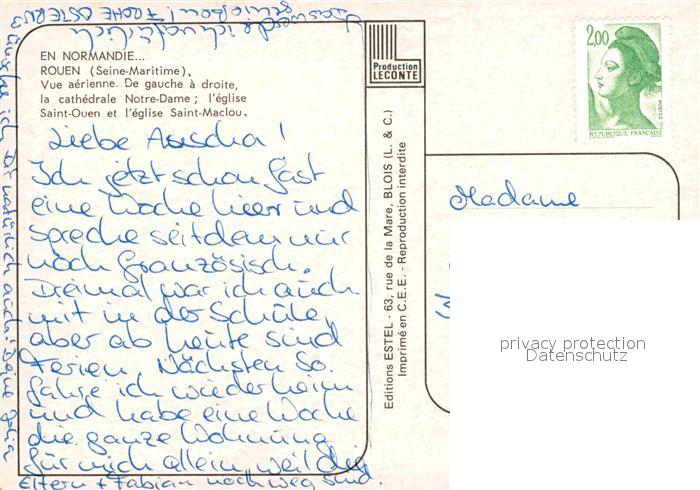 EN NORMANDIE...
ROUEN (Seine-Maritime).
Vue aérienne. De gauche à droite,
la cathédrale Notre-Dame ; l'église
Saint-Ouen et l'église Saint-Maclou.
Liebe Asescha!
Ich jetzt schon fast
eine Woche hier und
spreche seitdem nur
noch Französisch.
Dreimal war ich auch
mit in der Schule,
aber ab heute sind
Ferien. Nächsten So.
fahre ich wieder heim
und habe eine Woche
die ganze Wohnung
für mich allein, weil die
Eltern + Fabian noch weg sind.
ich Dir natürlich auch! Deine Julia
FROHE OSTERN
Production
LECONTE
Editions ESTEL - 63, rue de la Mare, BLOIS (L. & C.)
Imprimé en C.E.E. - Reproduction interdite
2,00
POSTES
REPUBLIQUE FRANÇAISE
Madame
privacy protection
Datenschutz